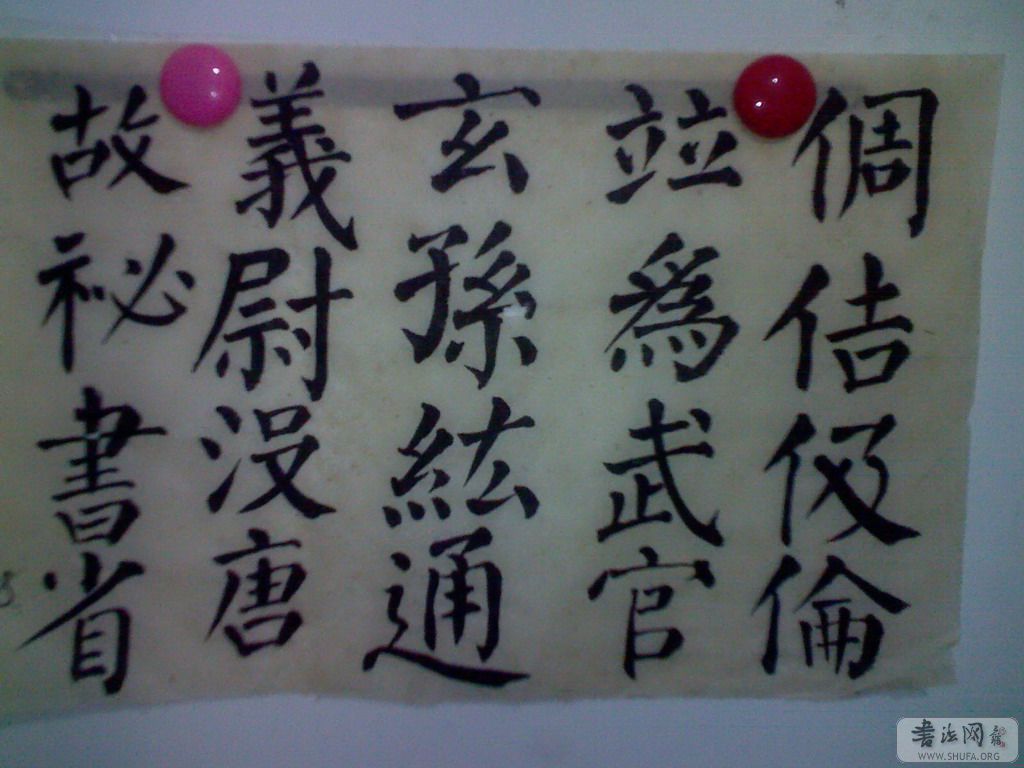 倜佶伋倫
竝爲武官
玄孫紘通
義尉没唐
故祕書省
書法网
WWW.SHUFA.ORG